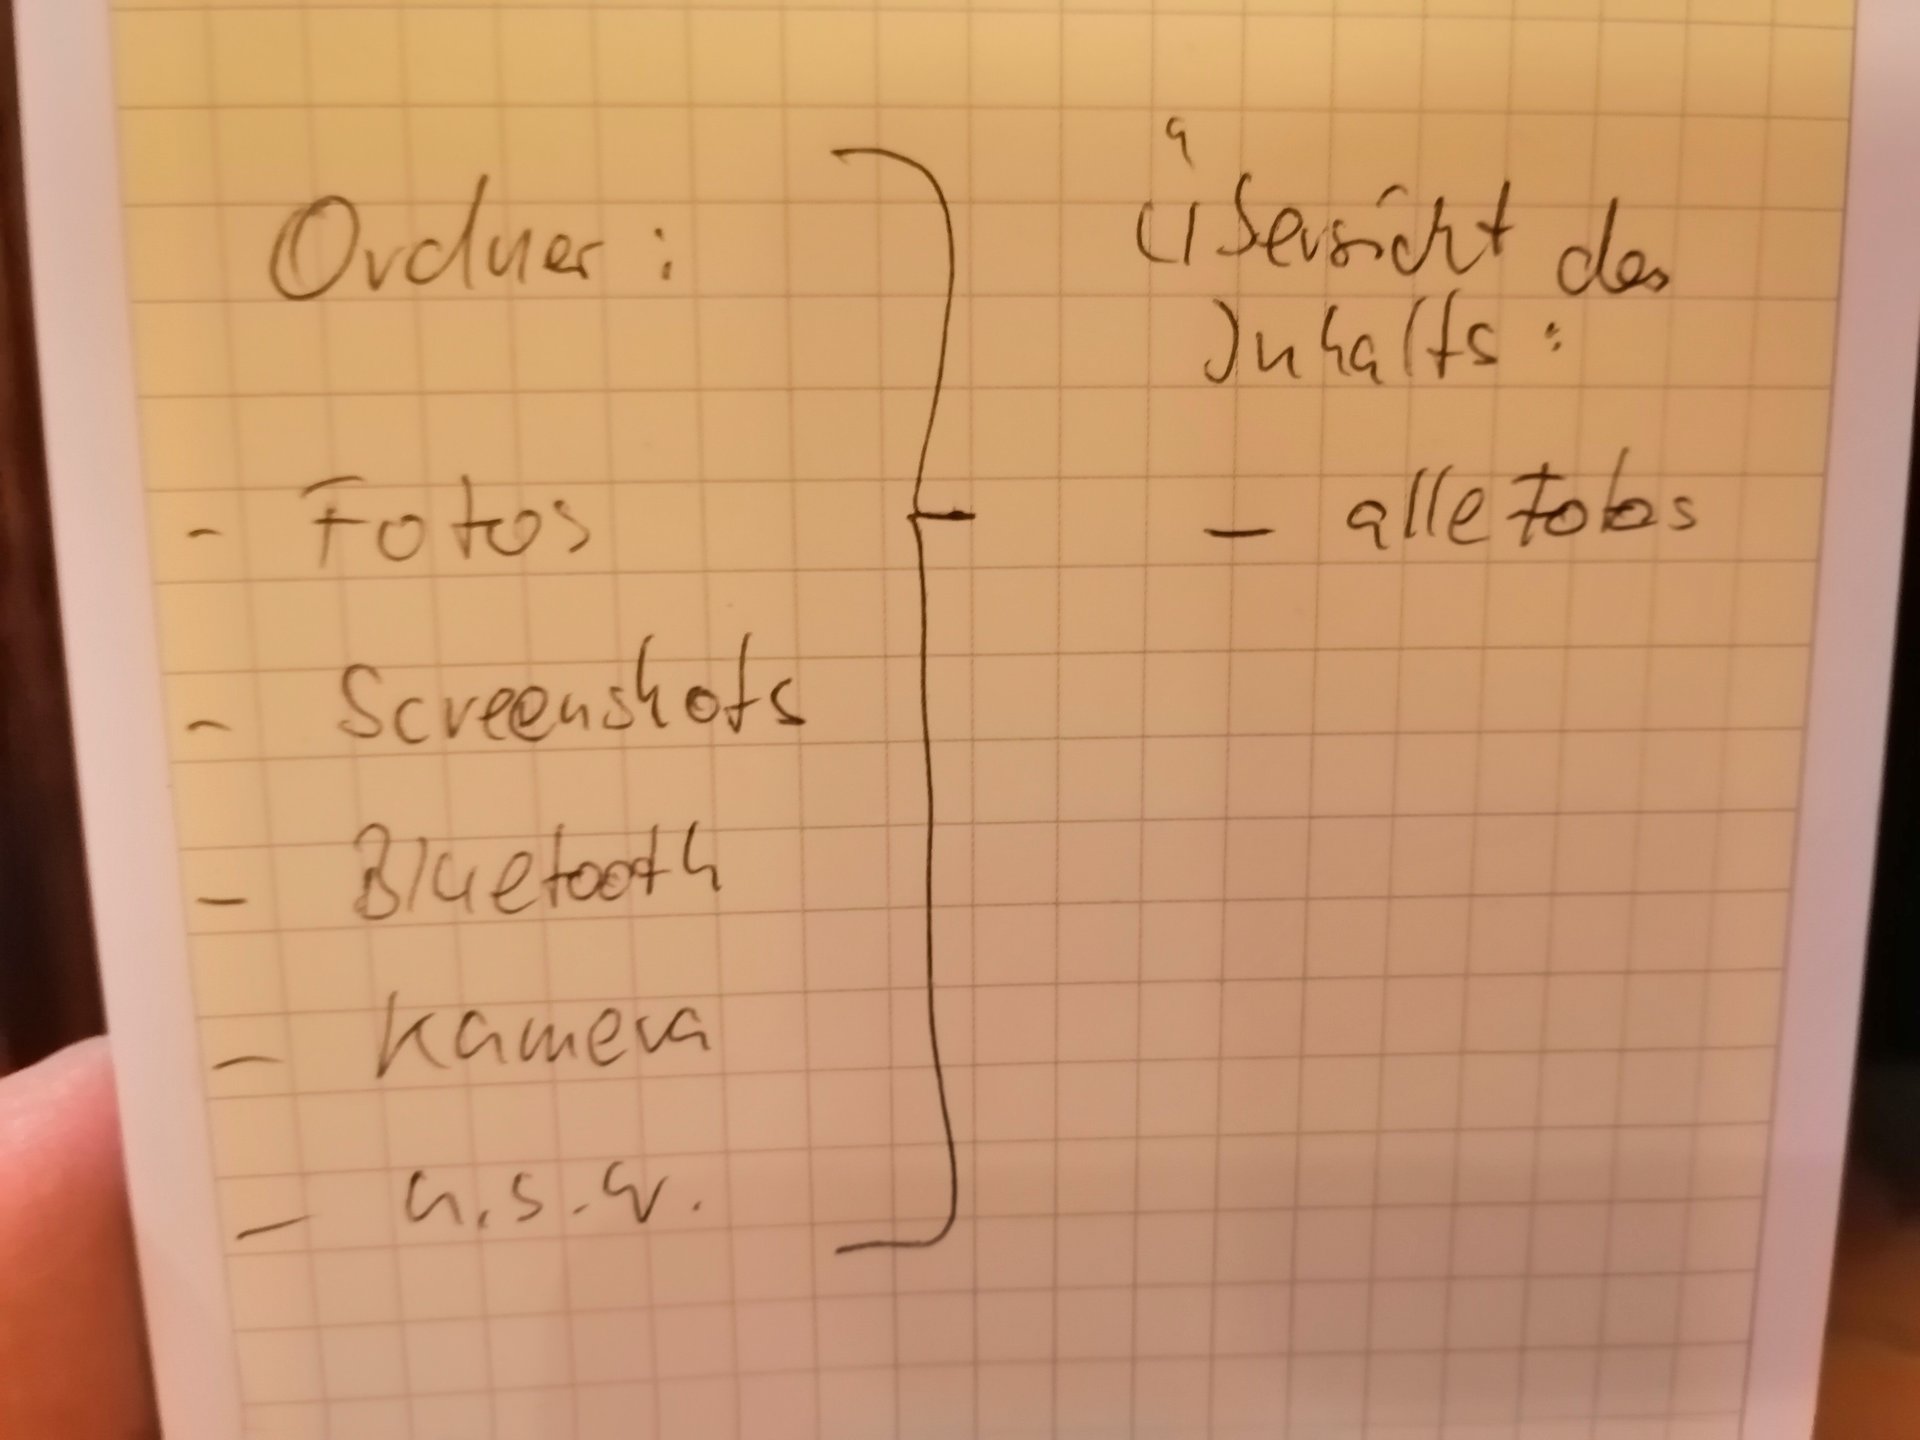 Ordner:
- Fotos
- Screenshots
- Bluetooth
- Kamera
- u.s.w.
Übersicht des
Inhalts:
- alle Fotos